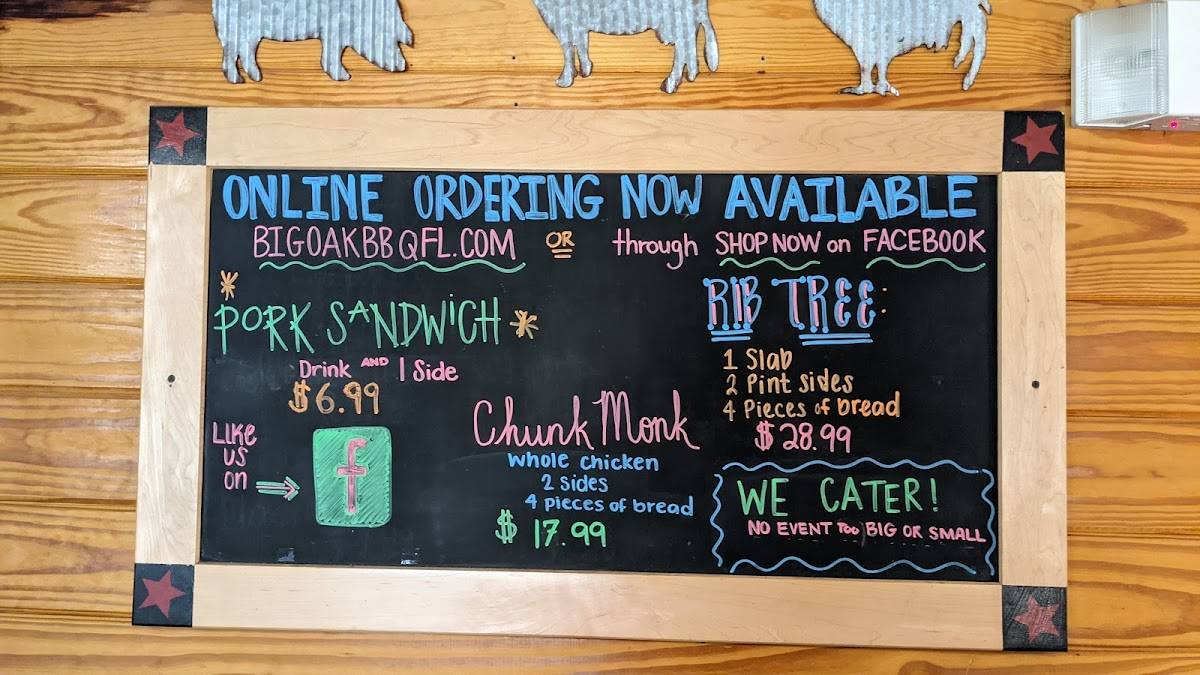 ONLINE ORDERING NOW AVAILABLE
BIGOAKBBQFL.COM OR through SHOP NOW on FACEBOOK
*
PORK SANDWiCH *
Drink AND 1 Side
$6.99
LiKe
US
on → f
Chunk Monk
whole chicken
2 sides
4 pieces of bread
$ 17.99
RIB TREE:
1 Slab
2 Pint sides
4 Pieces of bread
$28.99
WE CATER!
NO EVENT Too BIG OR SMALL